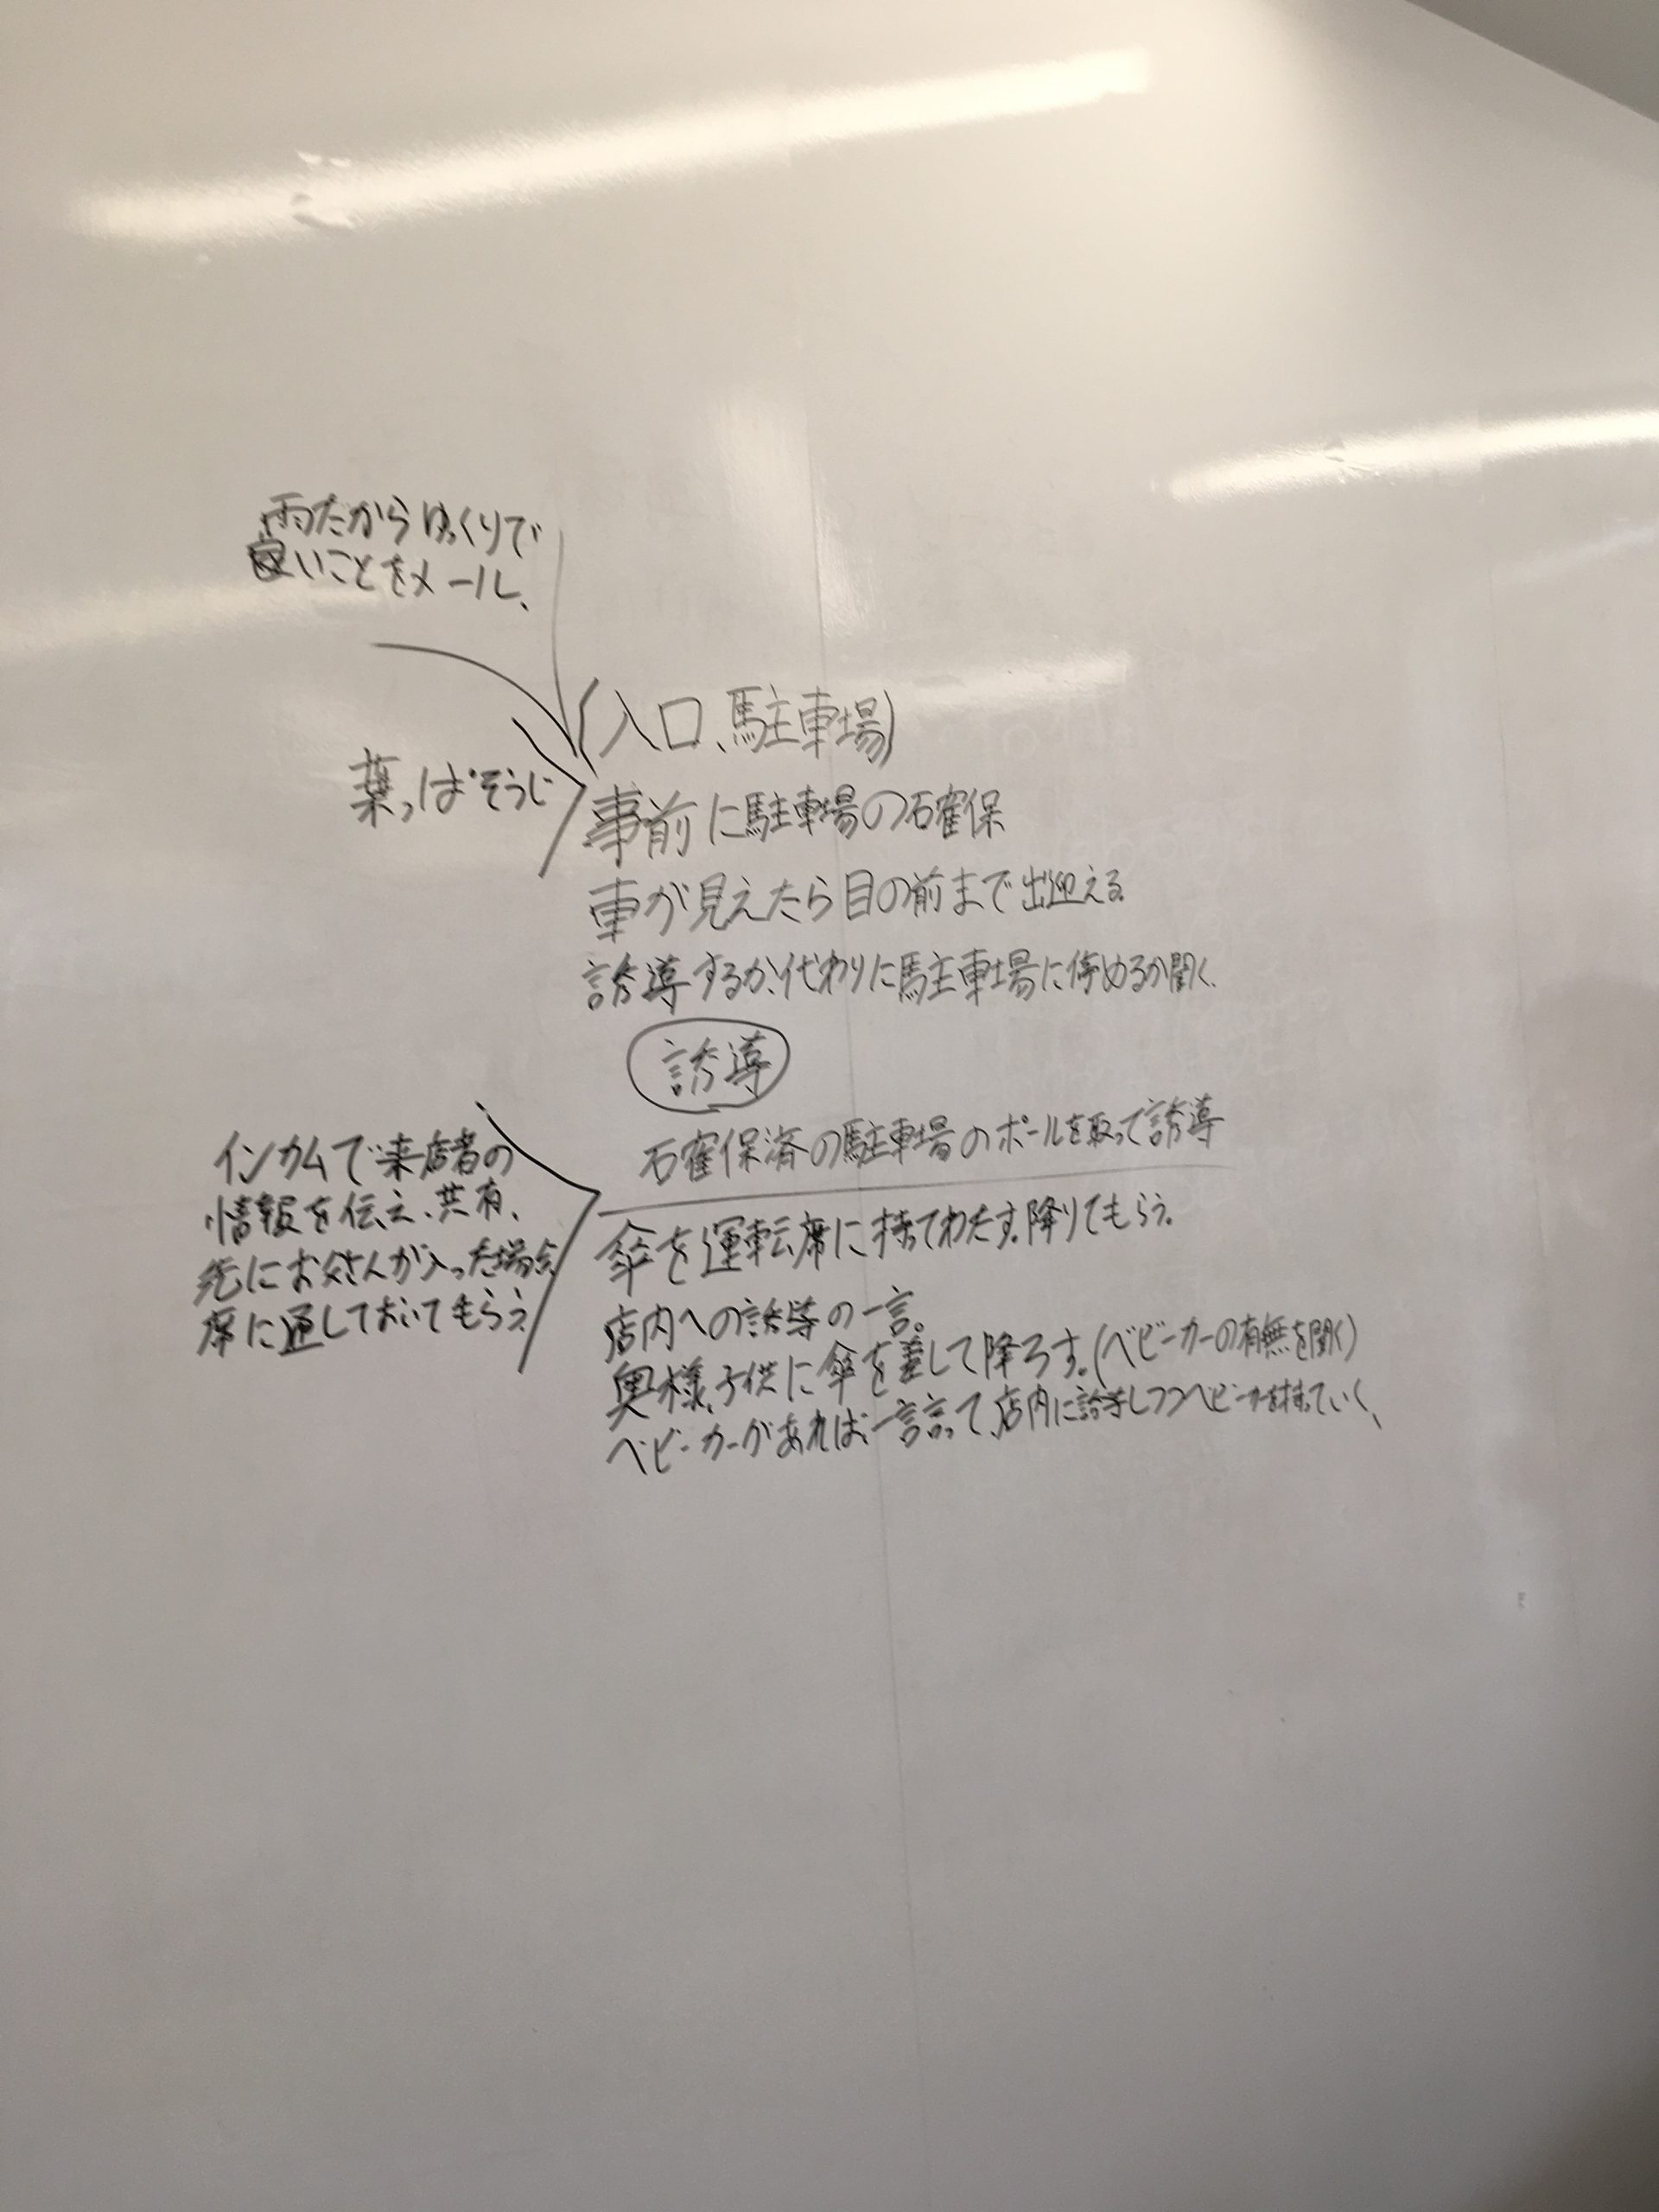 雨だからゆっくりで
良いことをメール、
(入口、駐車場)
葉っぱそうじ
事前に駐車場の確保
車が見えたら目の前まで出迎える
誘導するか、代わりに駐車場に停めるか聞く、
誘導
確保済の駐車場のポールを取って誘導
インカムで来店者の
情報を伝え、共有、
先にお父さんが入った場合
席に通しておいてもらう
傘を運転席に持ってわたす。降りてもらう。
店内への誘導の一言。
奥様、子供に傘を差して降ろす。(ベビーカーの有無を聞く)
ベビーカーがあれば、一言言って、店内に誘導しつつベビーカーを持っていく、